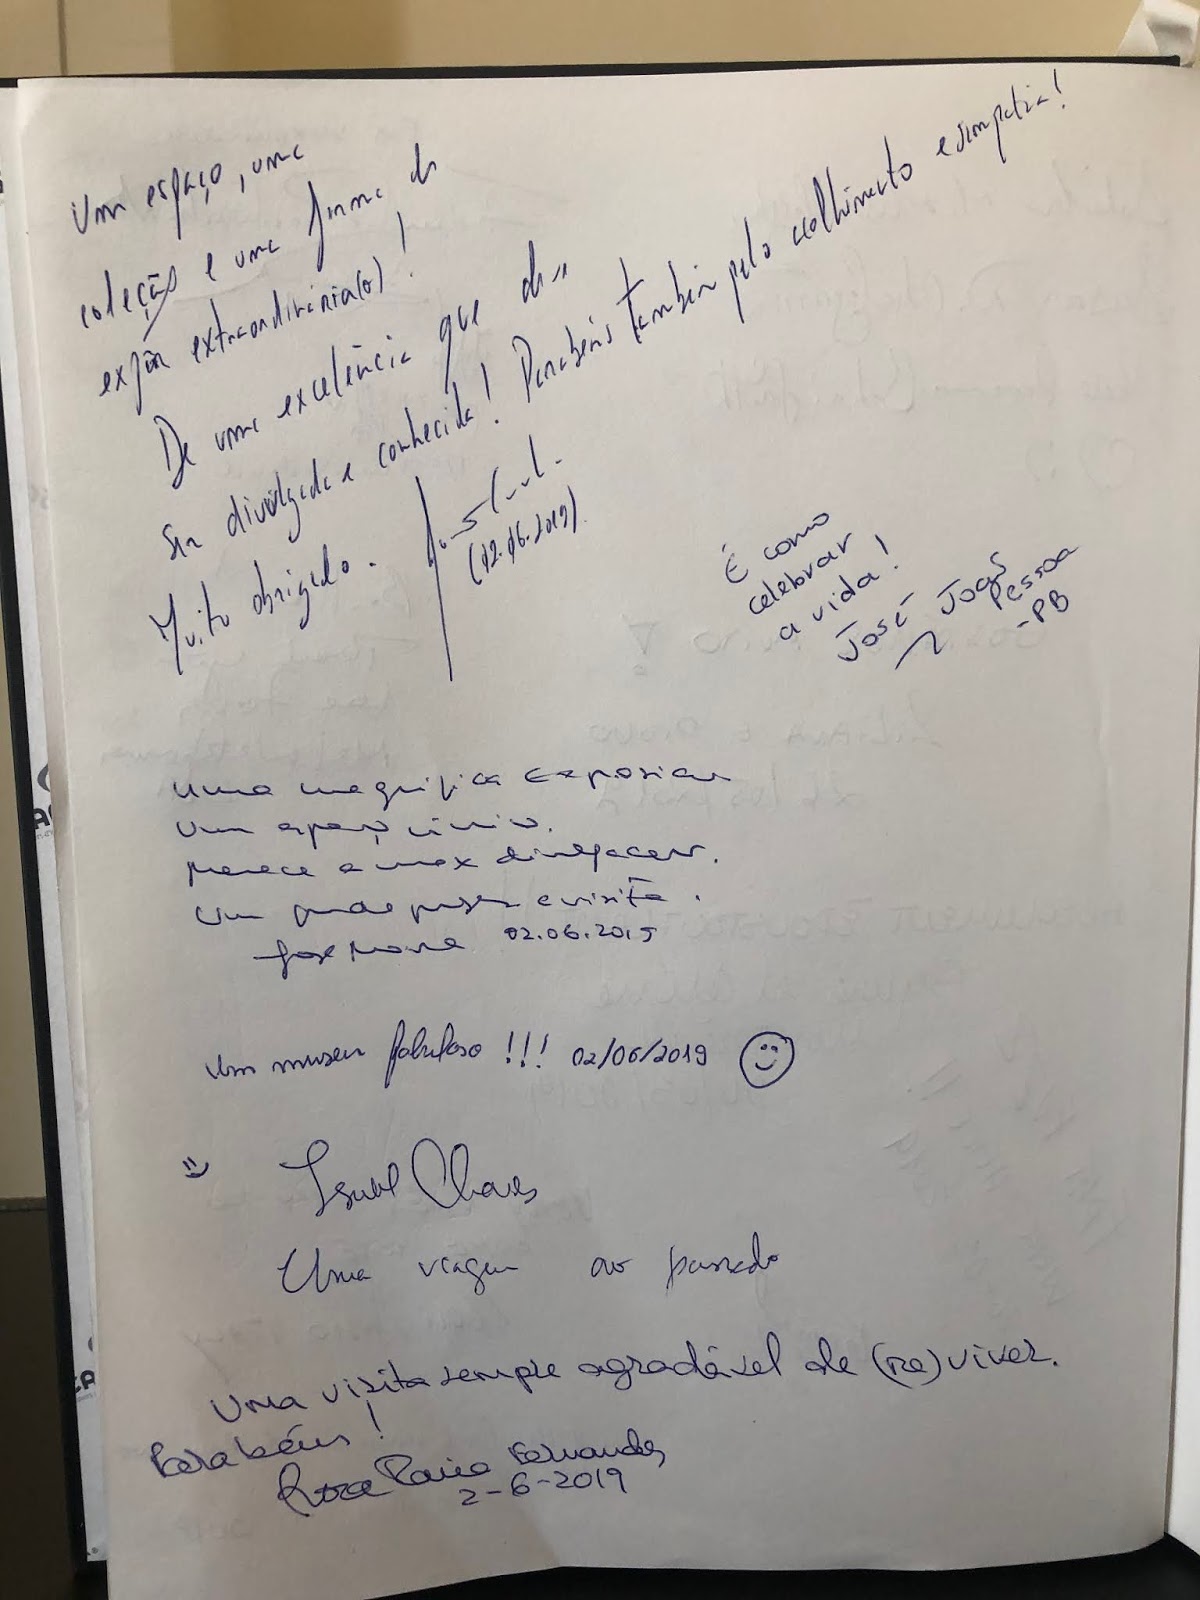 Um espaço, uma
coleção e uma forma de
expôr extraordinária(o)!
De uma excelência que deve
ser divulgada e conhecida! Parabéns também pelo acolhimento e simpatia!
Muito obrigado.
(02.06.2019).
É como
celebrar
a vida!
José João
Pessoa
-PB
Uma magnifica exposicao
Um espaço único.
Merece a max divulgacao.
Um grande prazer a visita.
02.06.2019
Um museu fabuloso !!! 02/06/2019
Isabel Chaves
Uma viagem ao passado
Uma visita sempre agradável de (re)viver.
Parabéns!
Rosa Maria Fernandes
2-6-2019